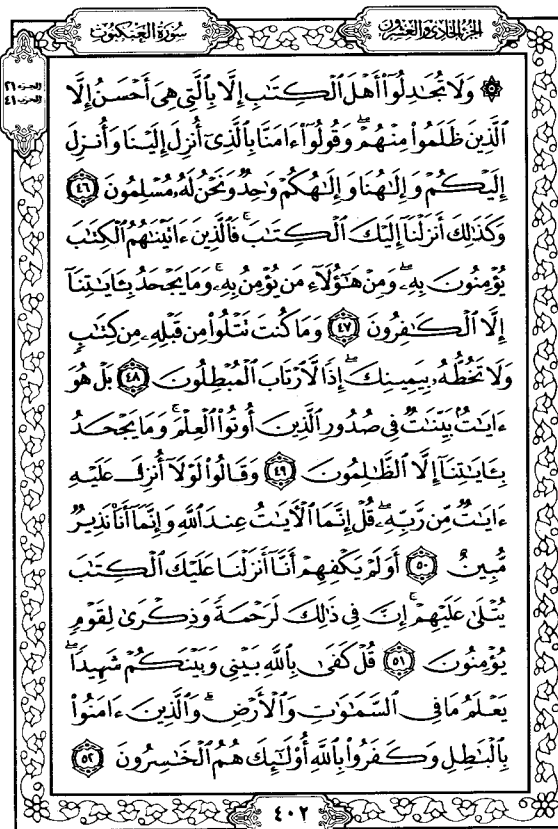 سُورَةُ الْعَنْكَبُوتِ
الجُزْءُ الحَادِي وَالعِشْرُونَ
الجزء ٢١
الحزب ٤١
۞ وَلَا تُجَٰدِلُوٓاْ أَهْلَ ٱلْكِتَٰبِ إِلَّا بِٱلَّتِى هِىَ أَحْسَنُ إِلَّا
ٱلَّذِينَ ظَلَمُواْ مِنْهُمْ ۖ وَقُولُوٓاْ ءَامَنَّا بِٱلَّذِىٓ أُنزِلَ إِلَيْنَا وَأُنزِلَ
إِلَيْكُمْ وَإِلَٰهُنَا وَإِلَٰهُكُمْ وَٰحِدٌ وَنَحْنُ لَهُۥ مُسْلِمُونَ ٤٦
وَكَذَٰلِكَ أَنزَلْنَآ إِلَيْكَ ٱلْكِتَٰبَ ۚ فَٱلَّذِينَ ءَاتَيْنَٰهُمُ ٱلْكِتَٰبَ
يُؤْمِنُونَ بِهِۦ ۖ وَمِنْ هَٰٓؤُلَآءِ مَن يُؤْمِنُ بِهِۦ ۚ وَمَا يَجْحَدُ بِـَٔايَٰتِنَآ
إِلَّا ٱلْكَٰفِرُونَ ٤٧ وَمَا كُنتَ تَتْلُواْ مِن قَبْلِهِۦ مِن كِتَٰبٍ
وَلَا تَخُطُّهُۥ بِيَمِينِكَ ۖ إِذًا لَّٱرْتَابَ ٱلْمُبْطِلُونَ ٤٨ بَلْ هُوَ
ءَايَٰتٌۢ بَيِّنَٰتٌ فِى صُدُورِ ٱلَّذِينَ أُوتُواْ ٱلْعِلْمَ ۚ وَمَا يَجْحَدُ
بِـَٔايَٰتِنَآ إِلَّا ٱلظَّٰلِمُونَ ٤٩ وَقَالُواْ لَوْلَآ أُنزِلَ عَلَيْهِ
ءَايَٰتٌ مِّن رَّبِّهِۦ ۖ قُلْ إِنَّمَا ٱلْـَٔايَٰتُ عِندَ ٱللَّهِ وَإِنَّمَآ أَنَا۠ نَذِيرٌ
مُّبِينٌ ٥٠ أَوَلَمْ يَكْفِهِمْ أَنَّآ أَنزَلْنَا عَلَيْكَ ٱلْكِتَٰبَ
يُتْلَىٰ عَلَيْهِمْ ۚ إِنَّ فِى ذَٰلِكَ لَرَحْمَةً وَذِكْرَىٰ لِقَوْمٍ
يُؤْمِنُونَ ٥١ قُلْ كَفَىٰ بِٱللَّهِ بَيْنِى وَبَيْنَكُمْ شَهِيدًا ۖ
يَعْلَمُ مَا فِى ٱلسَّمَٰوَٰتِ وَٱلْأَرْضِ ۗ وَٱلَّذِينَ ءَامَنُواْ
بِٱلْبَٰطِلِ وَكَفَرُواْ بِٱللَّهِ أُوْلَٰٓئِكَ هُمُ ٱلْخَٰسِرُونَ ٥٢
٤٠٢